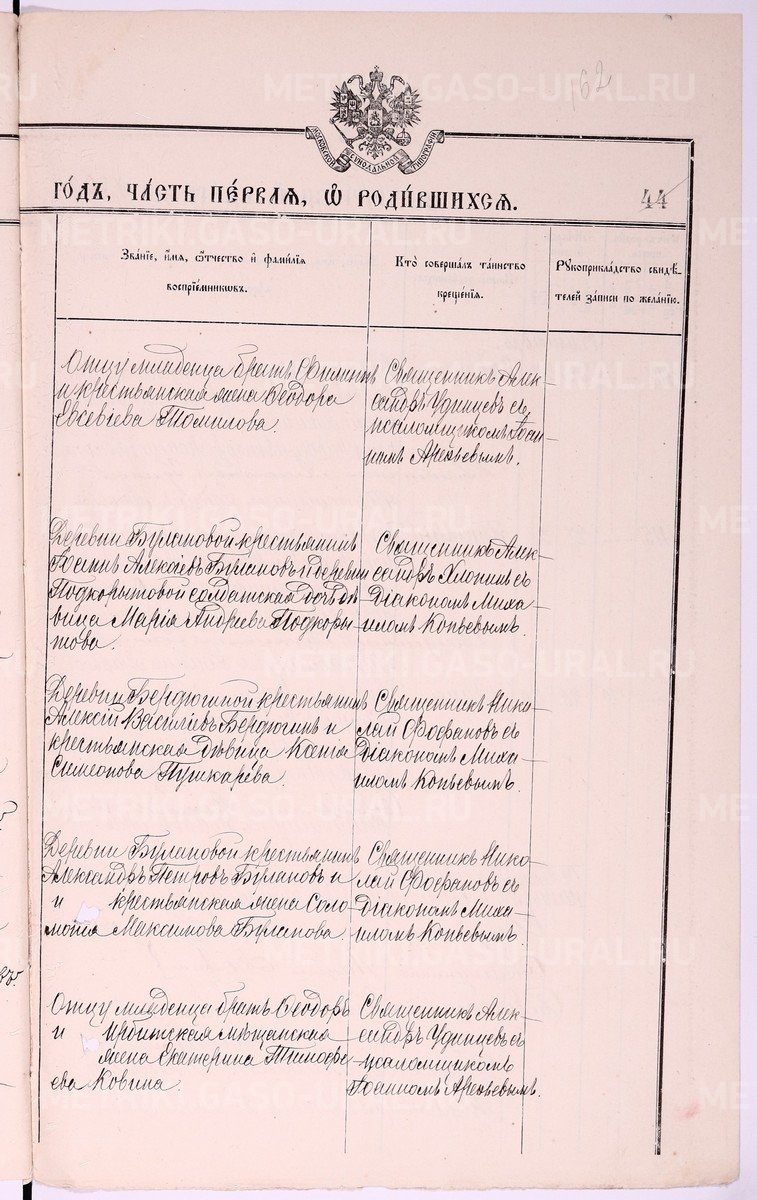 62
МОСКОВСКОЙ СѴНОДАЛЬНОЙ ТИПОГРАФІИ
ГО́ДЪ, ЧА́СТЬ ПЕ́РВАЯ, Ѡ҆ РОДИ́ВШИХСЯ.
44
Зва́нїе, и҆́мя, ѻ҆́тчество и҆ фами́лїя
воспрїе́мниковъ.
Кто̀ соверша́лъ та́инство
креще́нїя.
Рꙋкоприкла́дство свидѣ́-
телей за́писи по жела́нїю.
Отцу младенца братъ Филиппъ
и крестьянская жена Ѳеодора
Евсевіева Томилова.
Священникъ Алек-
сандръ Удинцевъ съ
псаломщикомъ Іоан-
номъ Арефьевымъ.
Деревни Булановой крестьянинъ
Іоаннъ Алексіевъ Булановъ и деревни
Подкорытовой солдатская дочь дѣ-
вица Марія Андреева Подкоры-
това.
Священникъ Алек-
сандръ Хлопинъ съ
Діакономъ Миха-
иломъ Копьевымъ.
Деревни Бердюгиной крестьянинъ
Алексій Василіевъ Бердюгинъ и
крестьянская дѣвица
Симеонова Пушкарева.
Священникъ Нико-
лай Фофановъ съ
Діакономъ Миха-
иломъ Копьевымъ.
Деревни Булановой крестьянинъ
Александръ Петровъ Булановъ и
и крестьянская жена Соло-
монія Максимова Буланова.
Священникъ Нико-
лай Фофановъ съ
Діакономъ Миха-
иломъ Копьевымъ.
Отцу младенца братъ Ѳеодоръ
и Ирбитская мѣщанская
жена Екатерина Тимофе-
ева Ковина.
Священникъ Алек-
сандръ Удинцевъ съ
псаломщикомъ
Іоанномъ Арефьевымъ.
METRIKI.GASO-URAL.RU